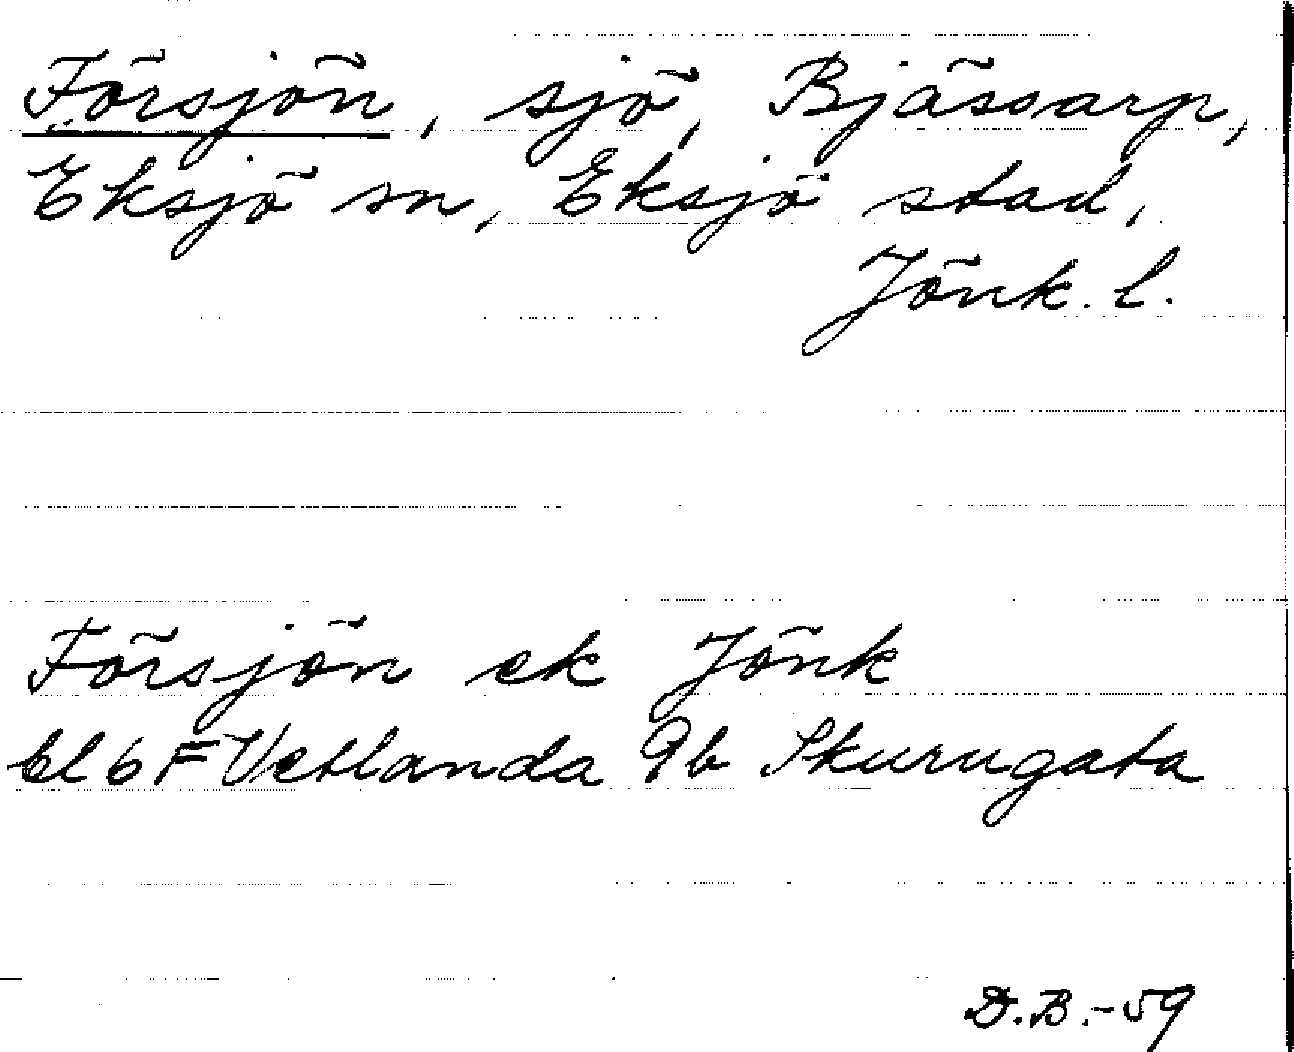 Försjön, sjö, Bjässarp,
Eksjö sn, Eksjö stad,
Jönk. l.
Försjön ek Jönk
bl 6 F Vetlanda 9b Skurugata
D.B.-59